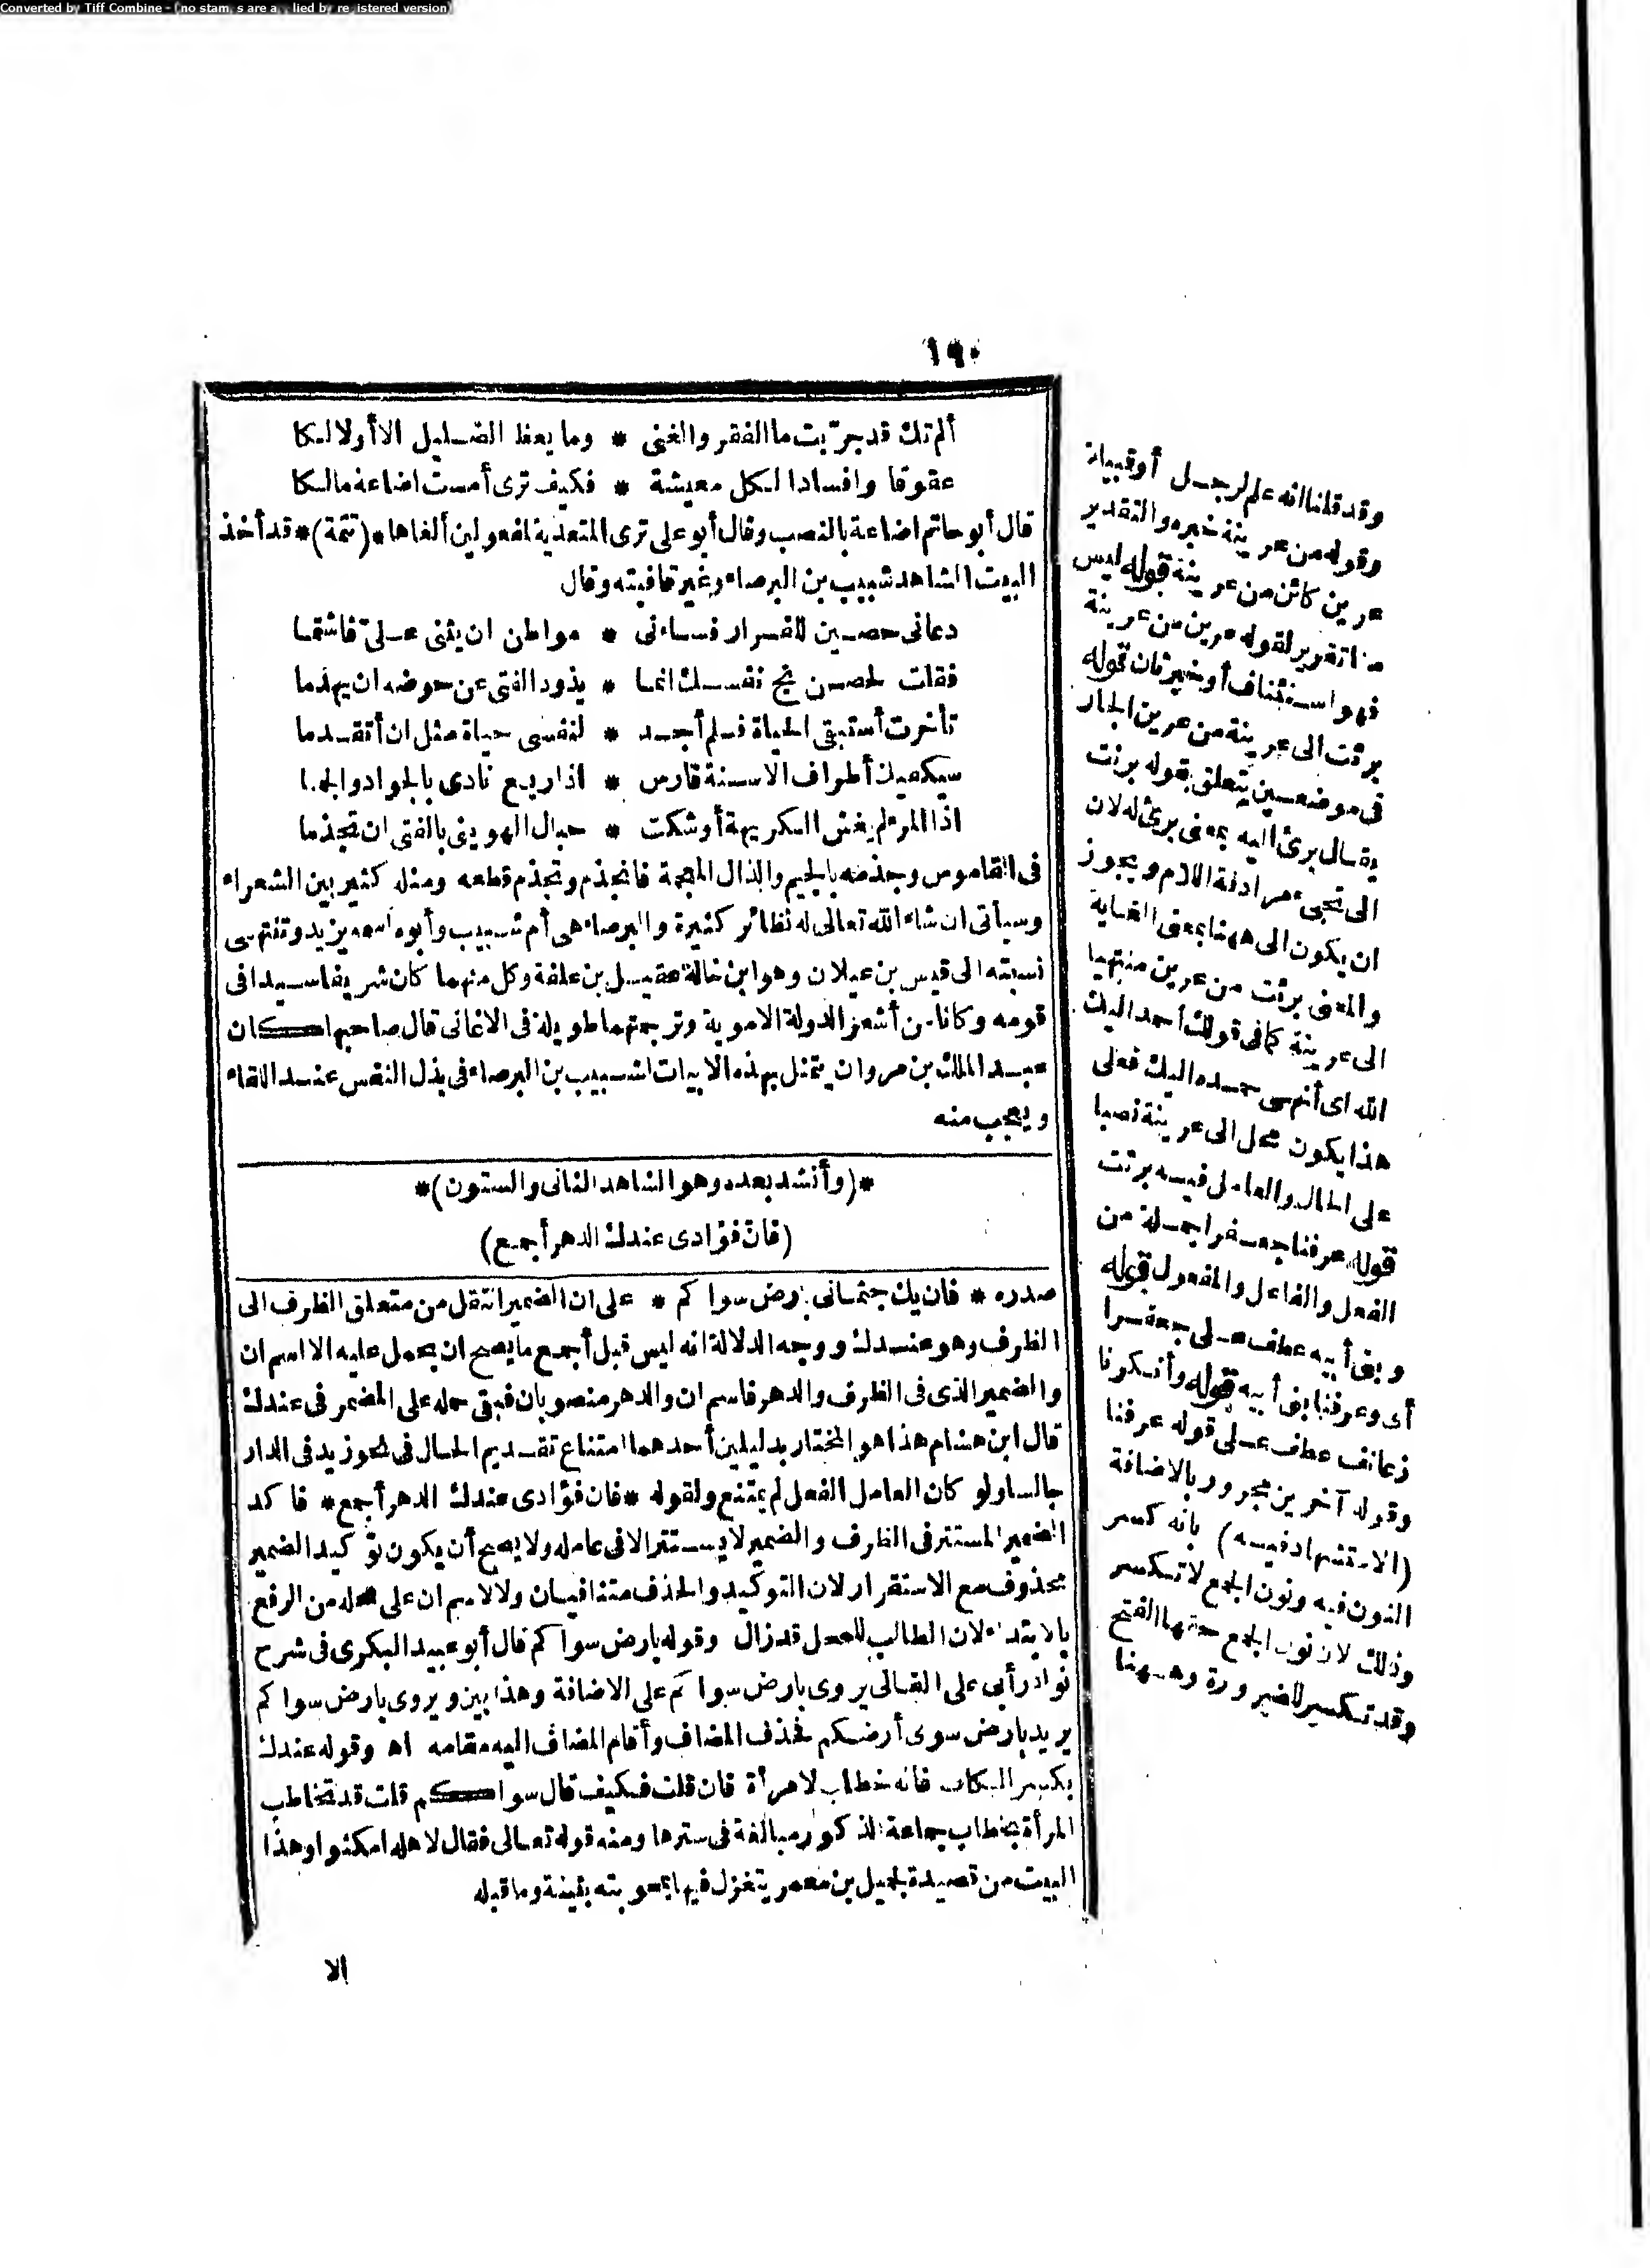 Converted by Tiff Combine - (no stamps are applied by registered version)
١٩٠
ألم تك قد جرّبت ما الفقر والغنى * وما يعظ الضليل الا أولالكا
عقوقا وافسادا لكل معيشة * فكيف ترى أمست اضاعة مالكا
قال أبو حاتم اضاعة بالنصب وقال أبو على ترى المتعدية لمفعولين ألغاها *(تتمة)* قد أخذ
البيت الشاهد شبيب بن البرصاء وغير قافيته وقال
دعانى حصين للفرار فساءنى * مواطن ان يثنى علىّ فاشتما
فقلت لحصن نج نفسك انما * يذود الفتى عن حوضه ان يهدما
تأخرت أستبقى الحياة فلم أجد * لنفسى حياة مثل ان أتقدما
سيكفيك أطراف الاسنة فارس * اذا ريع نادى بالجواد والجما
اذا المرء لم يغش الكريهة أوشكت * حبال الهوينى بالفتى ان تجذما
فى القاموس وجذمه بالجيم والذال المعجمة فانجذم وتجذم قطعه ومثله كثير بين الشعراء
وسيأتى ان شاء الله تعالى له نظائر كثيرة والبرصاء هى أم شبيب وأبوه اسمه يزيد وتنتهى
نسبته الى قيس بن عيلان وهو ابن خالة عقيل بن علفة وكل منهما كان شريفا سيدا فى
قومه وكانا من أشعر الدولة الاموية وترجمتهما طويلة فى الاغانى قال صاحبها كان
عبد الملك بن مروان يتمثل بهذه الابيات لشبيب بن البرصاء فى بذل النفس عند اللقاء
ويعجب منه
*(وأنشد بعده وهو الشاهد الثانى والستون)*
(فان فؤادى عندك الدهر أجمع)
صدره * فان يك جثمانى بارض سوا كم * على ان الضمير انتقل من متعلق الظرف الى
الظرف وهو عندك ووجه الدلالة انه ليس قبل أجمع ما يصح ان يحمل عليه الا اسم ان
والضمير الذى فى الظرف والدهر فاسم ان والدهر منصوبان فبقى حمله على المضمر فى عندك
قال ابن هشام هذا هو المختار بدليلين أحدهما امتناع تقديم الحال فى نحو زيد فى الدار
جالسا ولو كان العامل الفعل لم يمتنع ولقوله *فان فؤادى عندك الدهر أجمع* فاكد
الضمير المستتر فى الظرف والضمير لا يستتر الا فى عامله ولا يصح أن يكون توكيد الضمير
محذوف مع الاستقرار لان التوكيد والحذف متنافيان ولا لاسم ان على محله من الرفع
بالابتداء لان الطالب للمحل قد زال وقوله بارض سوا كم قال أبو عبيد البكرى فى شرح
نوادر أبى على القالى يروى بارض سوا كم على الاضافة وهذا بين ويروى بارض سوا كم
يريد بارض سوى أرضكم فحذف المضاف وأقام المضاف اليه مقامه اه وقوله عندك
بكسر الكاف فانه خطاب لامرأة فان قلت فكيف قال سواكم قلت قد تخاطب
المرأة بخطاب جماعة الذكور مبالغة فى سترها ومنه قوله تعالى فقال لاهله امكثوا وهذا
البيت من قصيدة لجميل بن معمر يتغزل فيها بمحبوبته بثينة وما قبله
الا
وقد قلنا انه علم لرجل أو قبيلة
وقوله من عرينة خبره والتقدير
عرين كائن من عرينة قوله ليس
منا تقرير لقوله عرين من عرينة
فهو استئناف أو خبر ثان قوله
برئت الى عرينة من عرين الجار
فى موضعين يتعلق بقوله برئت
يقال برئ اليه بمعنى برئ له لان
الى تجىء مرادفة اللام ويجوز
ان يكون الى ههنا بمعنى الغاية
والمعنى برئت من عرين منتهيا
الى عرينة كما فى قولك أحمد اليك
الله اى أنهى حمده اليك فعلى
هذا يكون محل الى عرينة نصبا
على الحال والعامل فيه برئت
قوله عرفنا جعفرا جملة من
الفعل والفاعل والمفعول قوله
وبنى أبيه عطف على جعفرا
أى وعرفنا بنى أبيه قوله وأنكرنا
زعانف عطف على قوله عرفنا
وقوله آخرين مجرور بالاضافة
(الاستشهاد فيه) بانه كسر
النون فيه ونون الجمع لا تكسر
وذلك لان نون الجمع حقها الفتح
وقد تكسر للضرورة وههنا